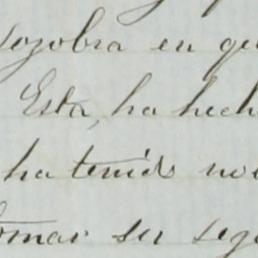 sozobra en que
Esta, ha hech
ha tenido no
tomar su seg